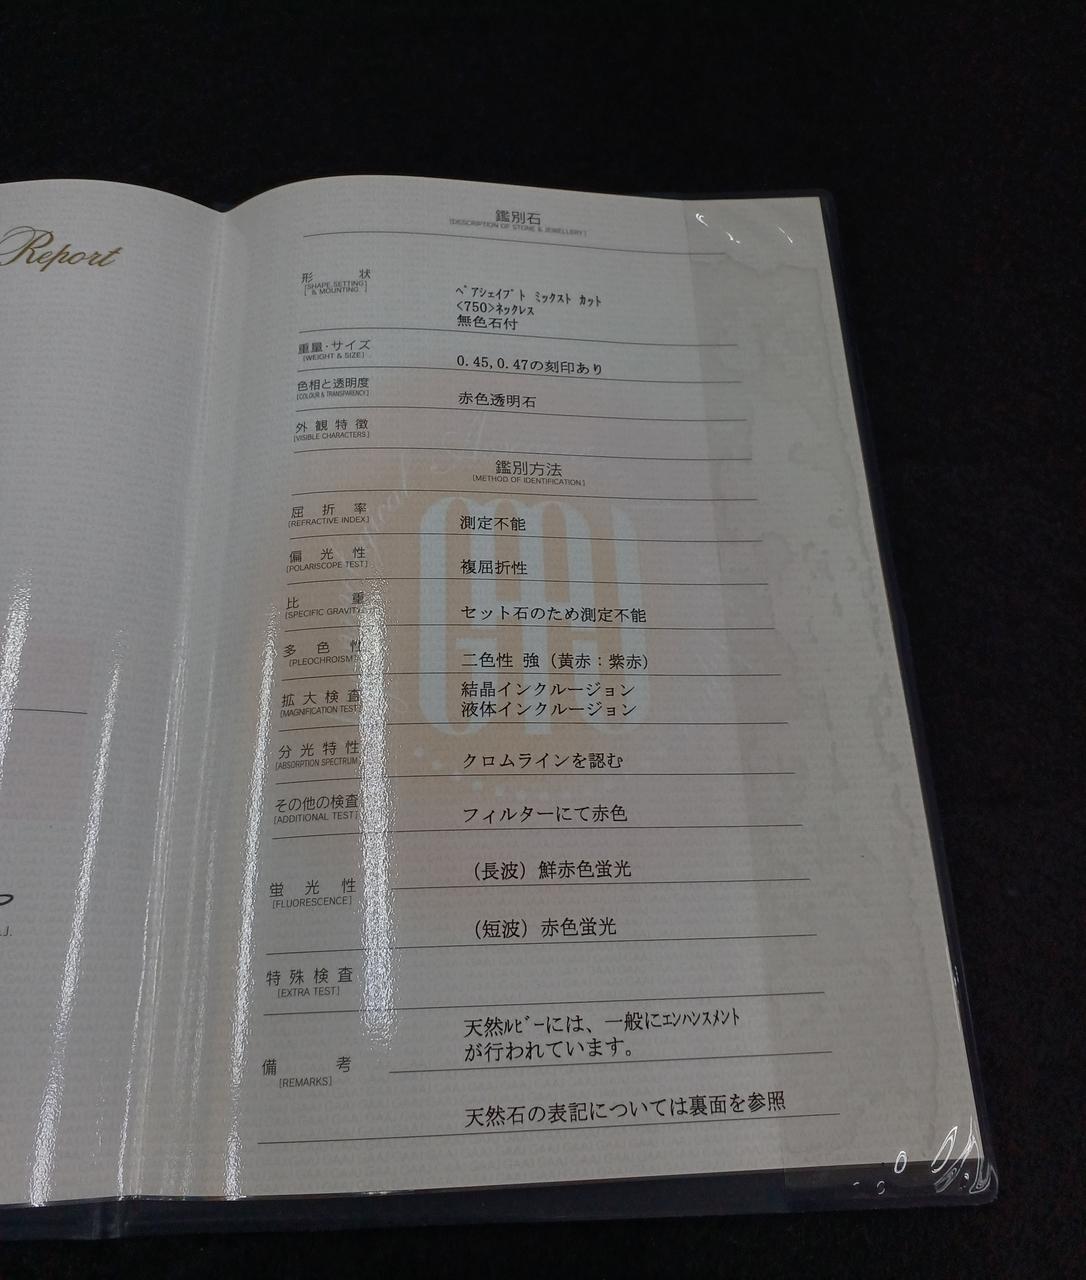 Report
鑑別石
[DESCRIPTION OF STONE & JEWELLERY]
形 状
[SHAPE, SETTING]
[& MOUNTING]
ペアシェイプト ミックスト カット
<750>ネックレス
無色石付
重量・サイズ
[WEIGHT & SIZE]
0.45,0.47の刻印あり
色相と透明度
[COLOUR & TRANSPARENCY]
赤色透明石
外観特徴
[VISIBLE CHARACTERS]
鑑別方法
[METHOD OF IDENTIFICATION]
屈折率
[REFRACTIVE INDEX]
測定不能
偏光性
[POLARISCOPE TEST]
複屈折性
比 重
[SPECIFIC GRAVITY]
セット石のため測定不能
多色性
[PLEOCHROISM]
二色性 強（黄赤：紫赤）
拡大検査
[MAGNIFICATION TEST]
結晶インクルージョン
液体インクルージョン
分光特性
[ABSORPTION SPECTRUM]
クロムラインを認む
その他の検査
[ADDITIONAL TEST]
フィルターにて赤色
蛍光性
[FLUORESCENCE]
（長波）鮮赤色蛍光
（短波）赤色蛍光
特殊検査
[EXTRA TEST]
備 考
[REMARKS]
天然ルビーには、一般にエンハンスメント
が行われています。
天然石の表記については裏面を参照